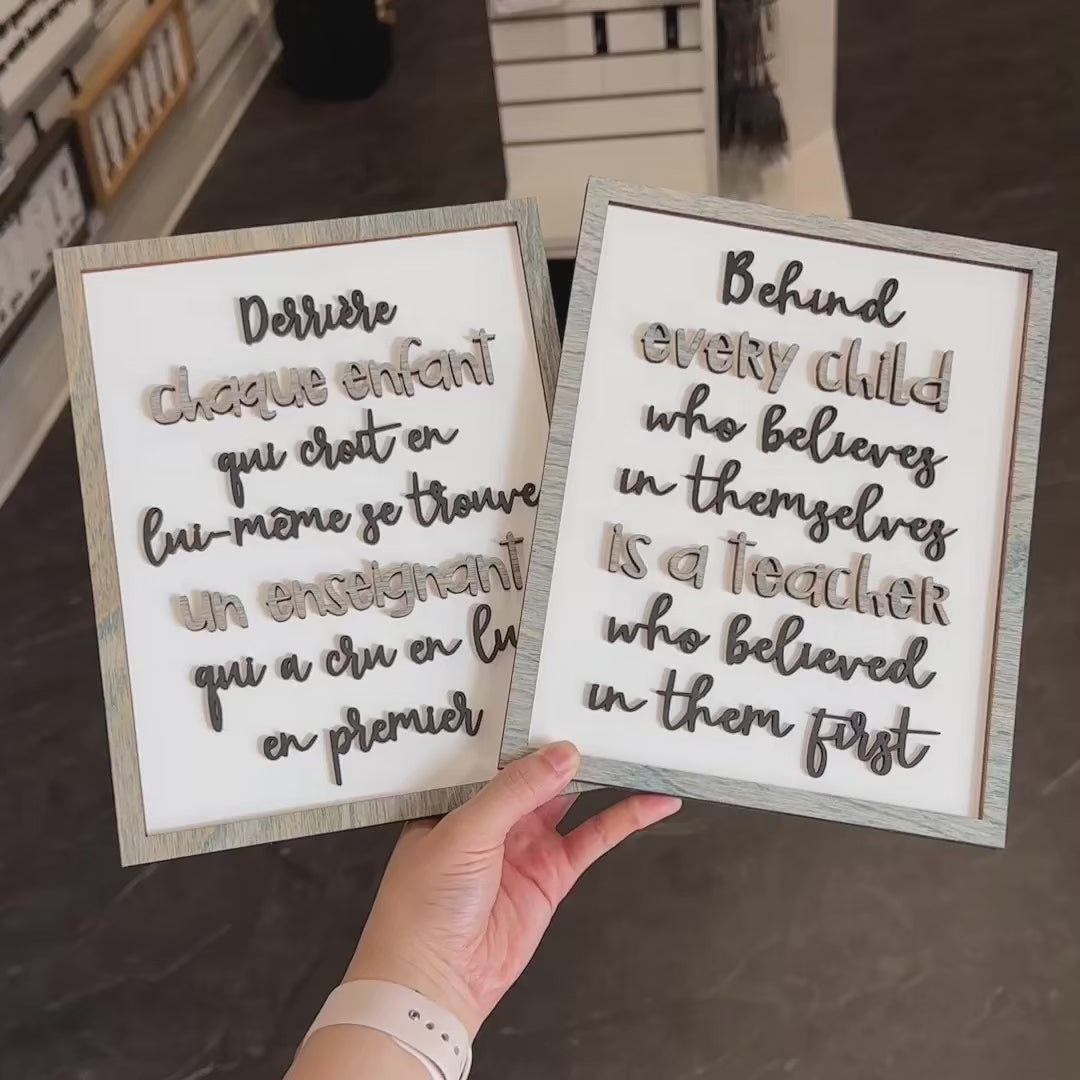 Derrière
chaque enfant
qui croit en
lui-même se trouve
un enseignant
qui a cru en lu
en premier
Behind
every child
who believes
in themselves
is a teacher
who believed
in them first